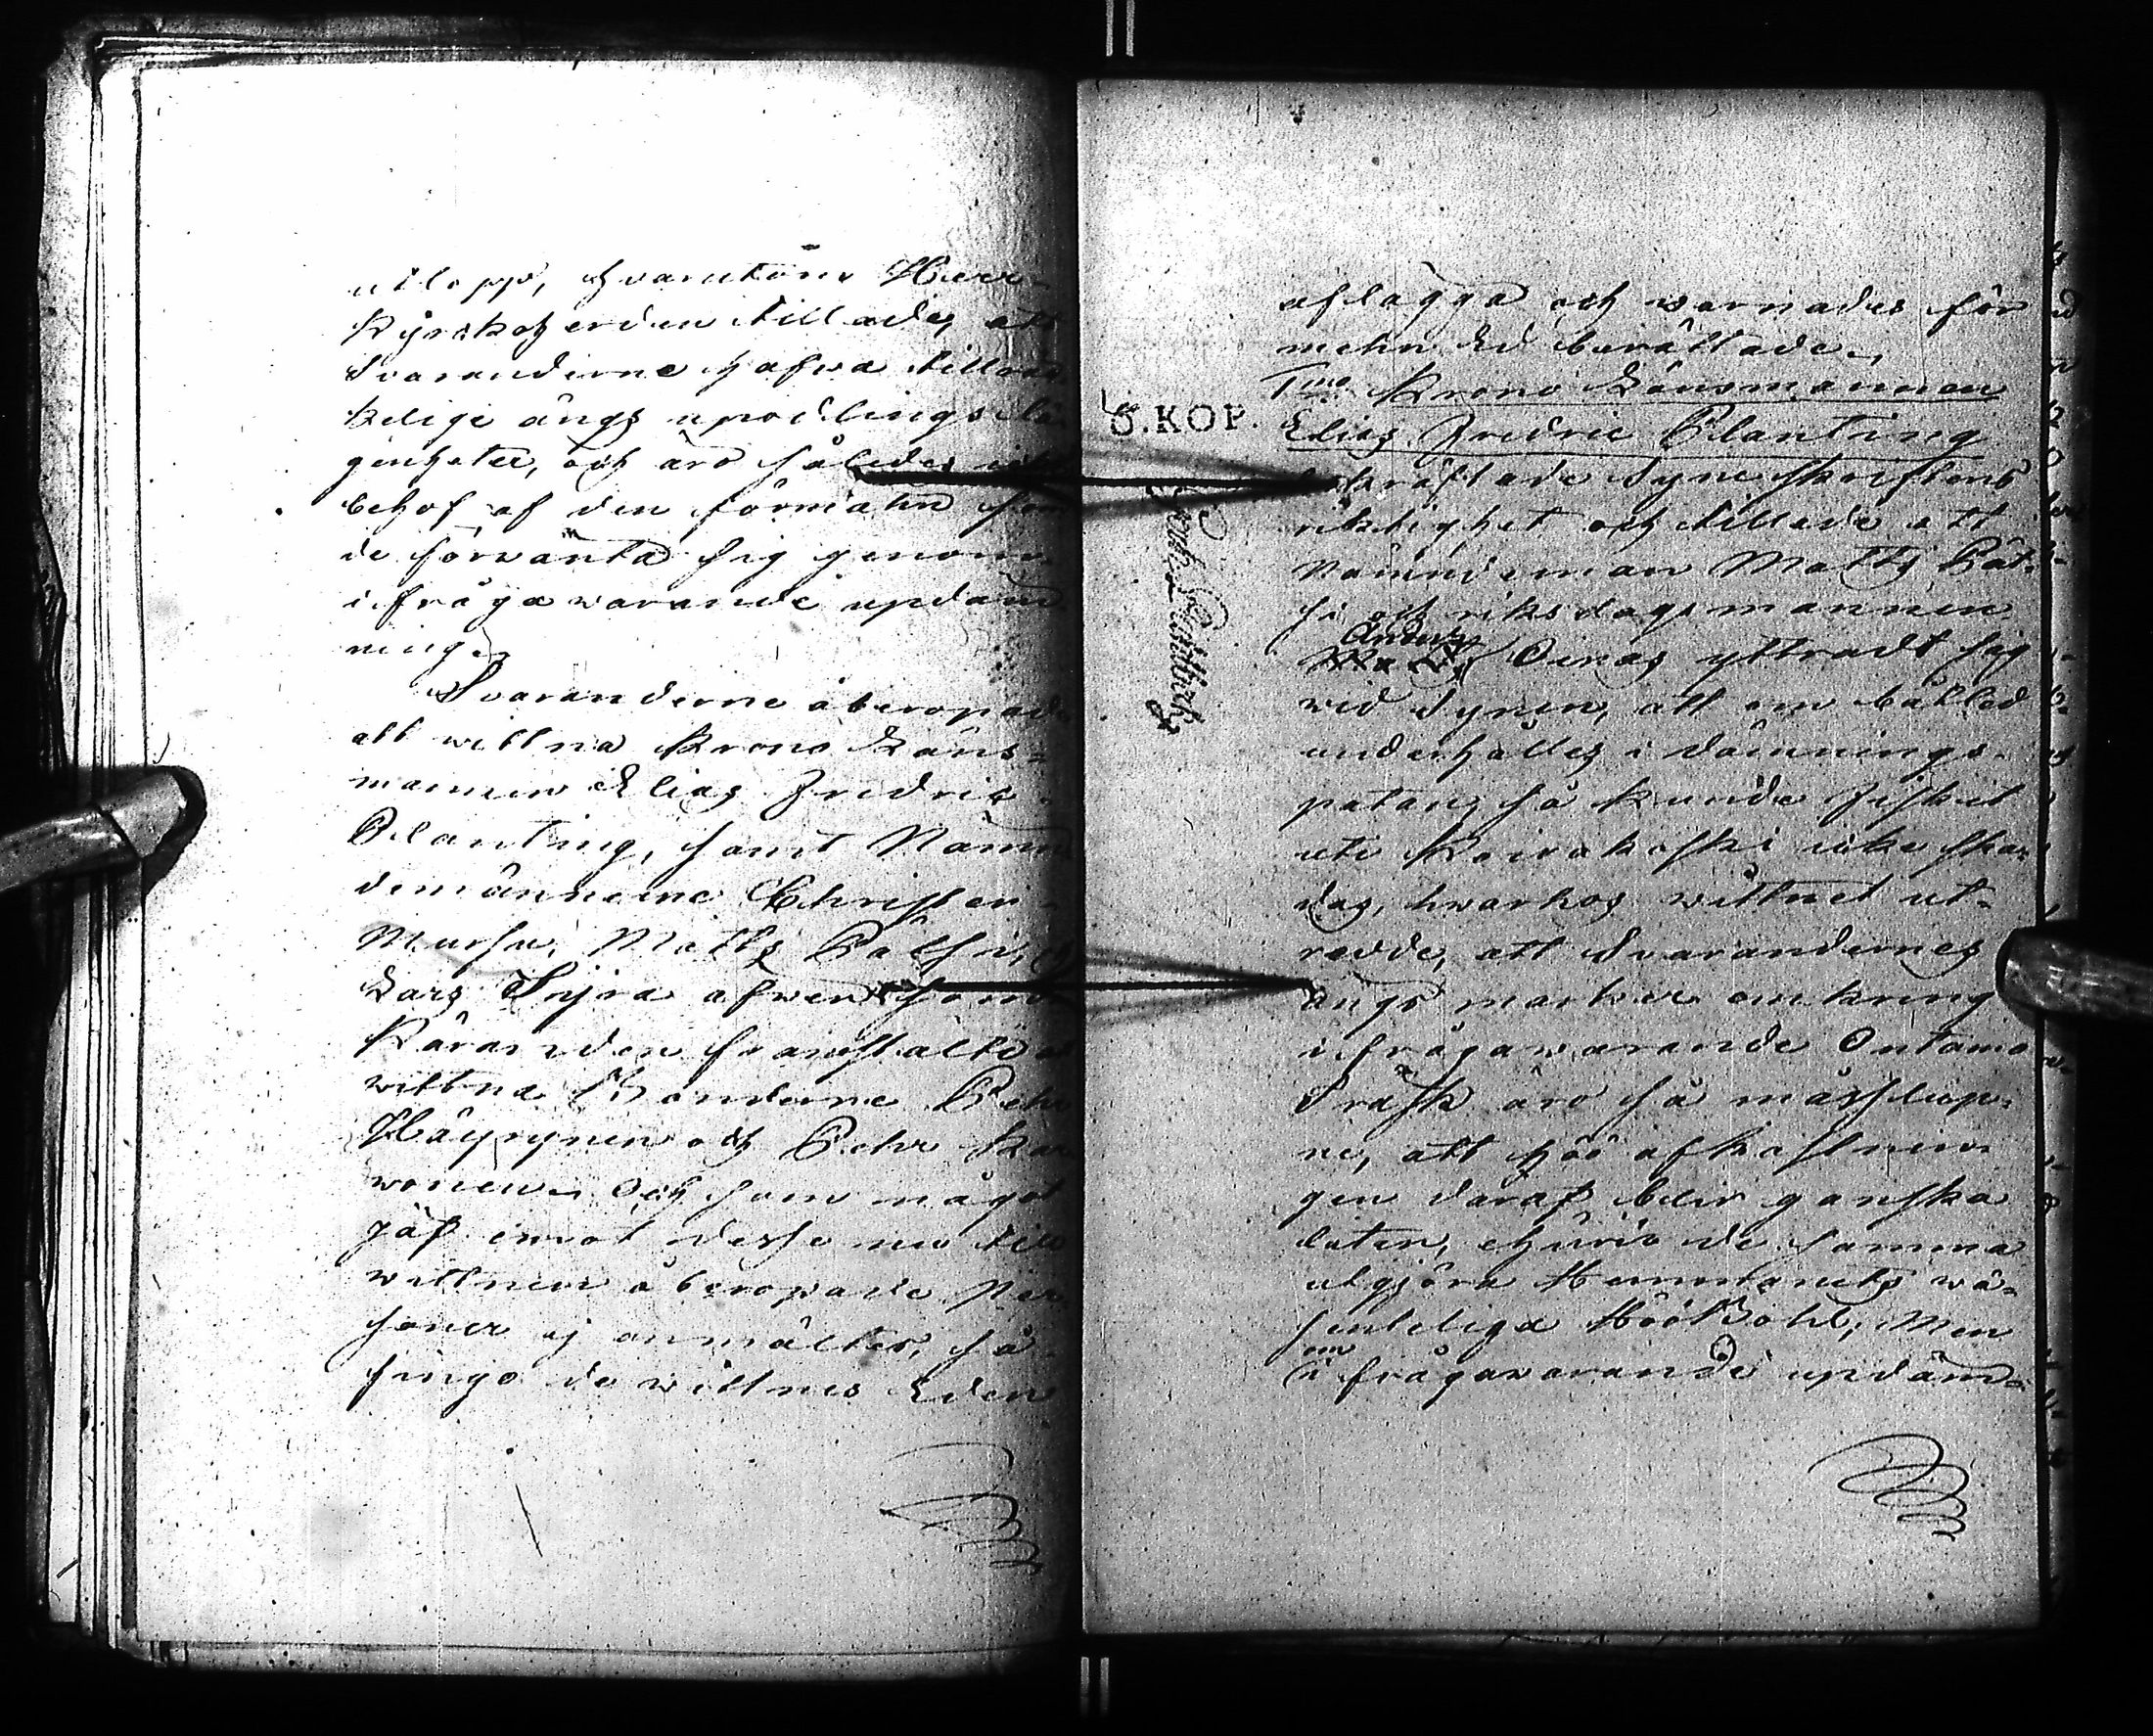 utlopp, hvarutöfver Herr
Kyrckoherden tillade, att
Svaranderne hafva tillräc
kelige ängs upodlings lä
genheter, och äro således utan
behof af den förmohn som
de förvänta sig genom
ifrågavarande updäm
ning.
Svaranderne åberopade
att wittna Krono Läns=
mannen Elias Fredric
Planting, samt Nämn
demännerne Christer
Mursu, Matts Pätsi, och
Lars Syra äfven som
Käranden framstälte at
wittna Bönderne Pehr
Häyrynen och Pehr Kar
vonen. Och som något
jäf emot desse nu till
wittnen åberopade per
soner ej anmältes, så
fingo de wittnes Eden
aflägga och warnades för
mehn Ed berättade.
1mo Krono Länsmannen
Elias Fredric Planting
bekräftade Syneskriftens
riktighet och tillade att
Nämndeman Matts Pät=
si och riksdagsmannen
Anders Oinas yttradt sig
wid Synen, att om båtled
underhålles i dämnings
patan, så kunde fisket
uti Koivokoski icke ska=
das, hvarhos wittnet ut=
redde, att Svarandernes
ängs marker omkring
ifrågavarande Ontamo
Träsk äro så mässlup=
ne, att höö afkastnin
gen däraf blir ganska
liten, ehuru de samma
utgjöra Hemmanets wä=
senteliga Höö Bohl; Men
om
ifrågavarande updäm=
S.KOP.